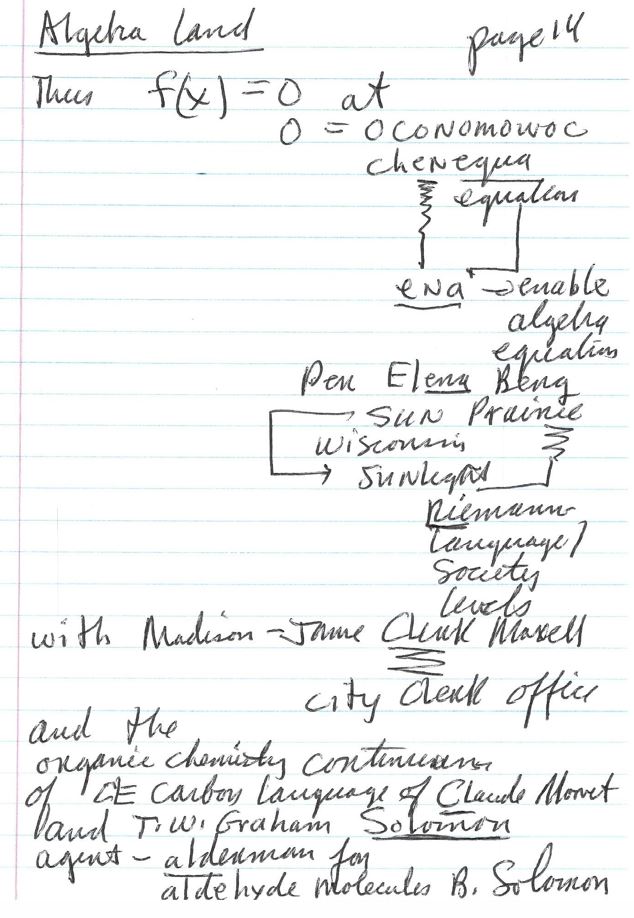 Algebra Land page 14
Thus f(x) = 0 at
0 = OCONOMOWOC
cheNequa
equation
eNa → enable
algebra
equation
Per Elena Berg
SUN Prairie
Wisconsin
SUNlight
Riemann
language/
Society
levels
with Madison - Jame Clerk Maxell
city Clerk office
and the
organic chemistry continuum
of carbon language of Claude Monet
land T.W. Graham Solomon
agent - alderman for
aldehyde molecules B. Solomon